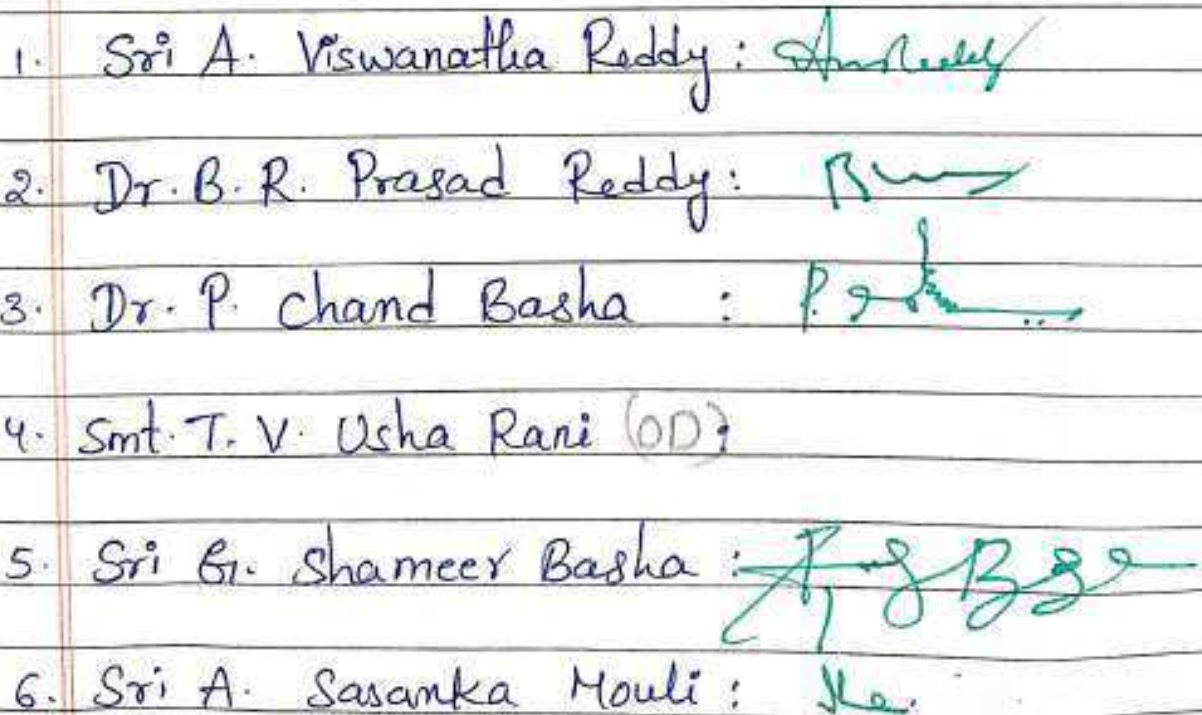 1. Sri A. Viswanatha Reddy :
2. Dr. B. R. Prasad Reddy :
3. Dr. P. Chand Basha :
4. Smt. T. V. Usha Rani (OD) :
5. Sri G. Shameer Basha :
6. Sri A. Sasanka Mouli :